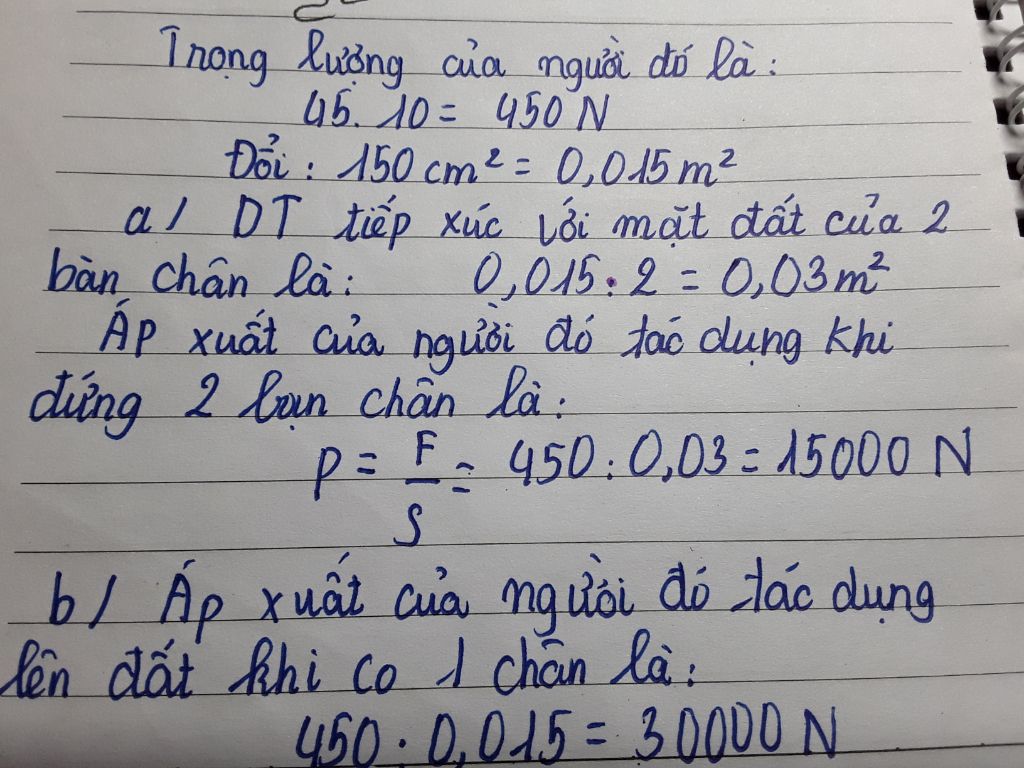 Trọng lượng của người đó là:
45. 10 = 450 N
Đổi: 150 cm² = 0,015 m²
a/ DT tiếp xúc với mặt đất của 2
bàn chân là: 0,015.2 = 0,03 m²
Áp xuất của người đó tác dụng khi
đứng 2 bạn chân là:
p = F/S = 450 : 0,03 = 15000 N
b/ Áp xuất của người đó tác dụng
lên đất khi co 1 chân là:
450 : 0,015 = 30000 N